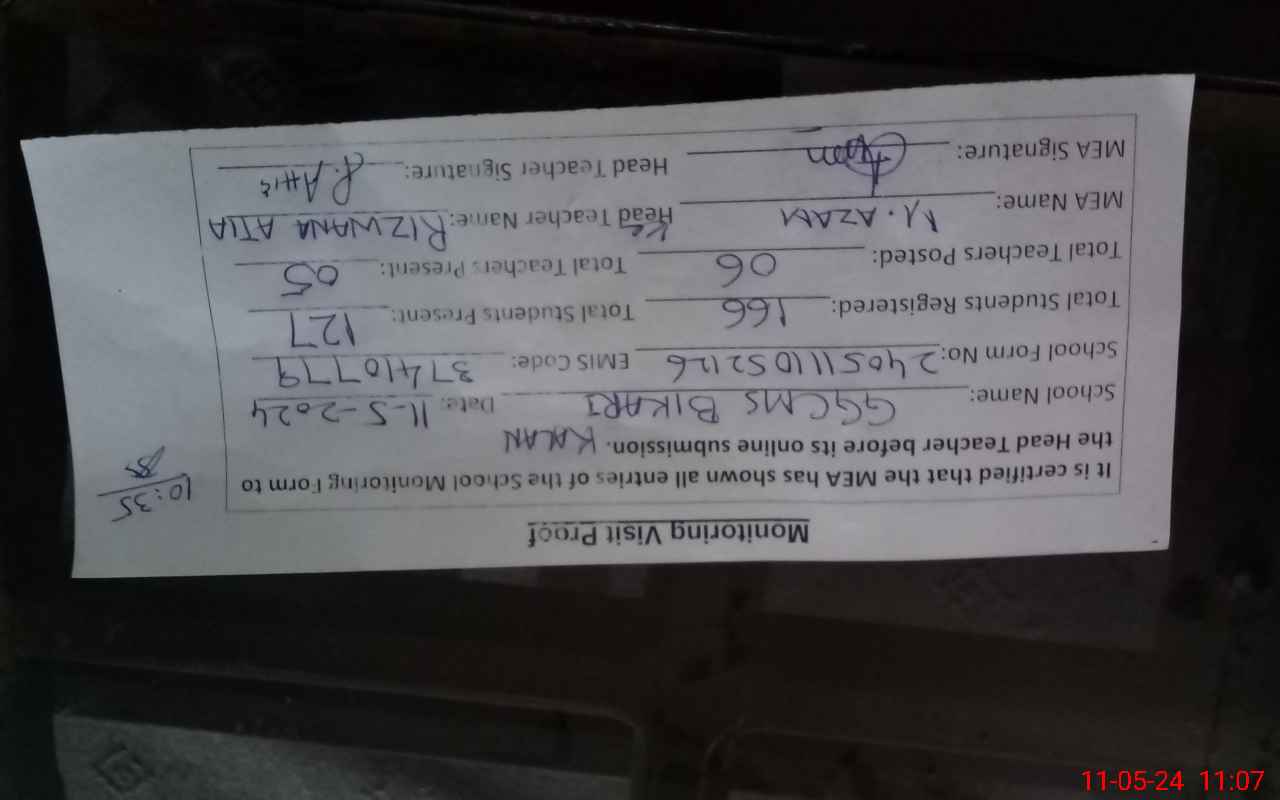 Monitoring Visit Proof
It is certified that the MEA has shown all entries of the School Monitoring Form to
the Head Teacher before its online submission. KALAN
10:35
School Name: GGCMS BIKARI Date: 11-5-2024
School Form No: 24051110S2126 EMIS Code: 37410779
Total Students Registered: 166 Total Students Present: 127
Total Teachers Posted: 06 Total Teachers Present: 05
MEA Name: M. AZAM Head Teacher Name: RIZWANA ATIA
MEA Signature: Head Teacher Signature: R. Atia
11-05-24 11:07